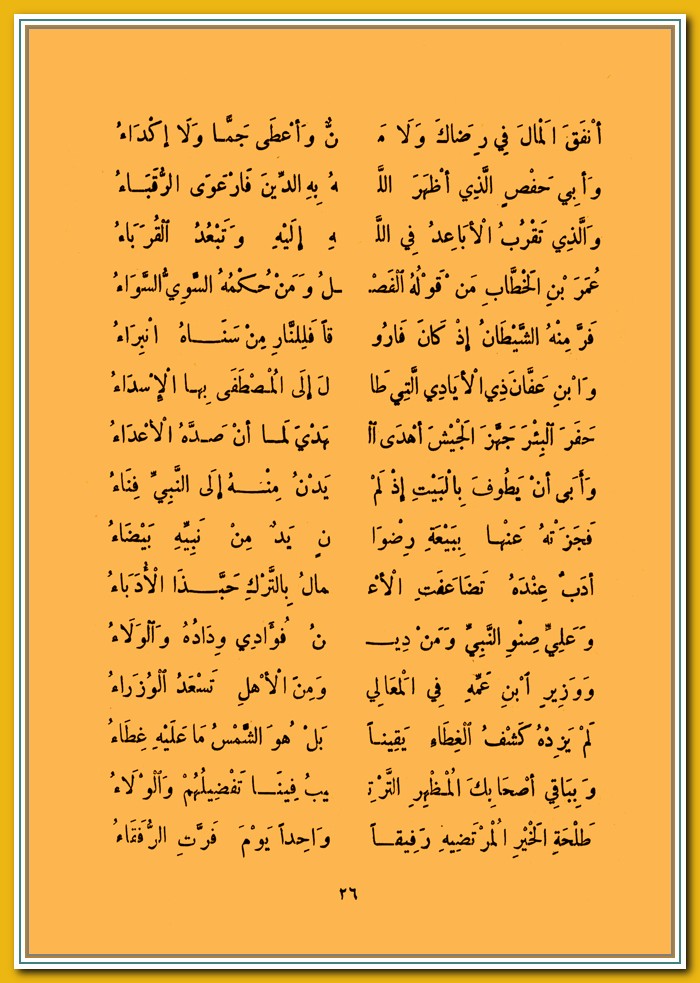 أَنْفَقَ الْمَالَ فِي رِضَاكَ وَلَا مَـ نٌّ وَأَعْطَى جَمًّا وَلَا إِكْدَاءُ
وَأَبِي حَفْصٍ الَّذِي أَظْهَرَ اللَّـ ـهُ بِهِ الدِّينَ فَارْعَوَى الرُّقَبَاءُ
وَالَّذِي تَقْرُبُ الْأَبَاعِدُ فِي اللَّـ ـهِ إِلَيْهِ وَتَبْعُدُ الْقُرَبَاءُ
عُمَرَ بْنِ الْخَطَّابِ مَنْ قَوْلُهُ الْفَصْـ ـلُ وَمَنْ حُكْمُهُ السَّوِيُّ السَّوَاءُ
فَرَّ مِنْهُ الشَّيْطَانُ إِذْ كَانَ فَارُو قاً فَلِلنَّارِ مِنْ سَنَاهُ انْبِرَاءُ
وَابْنِ عَفَّانَ ذِي الْأَيَادِي الَّتِي طَا لَ إِلَى الْمُصْطَفَى بِهَا الْإِسْدَاءُ
حَفَرَ الْبِئْرَ جَهَّزَ الْجَيْشَ أَهْدَى الْـ ـهَدْيَ لَمَا أَنْ صَدَّهُ الْأَعْدَاءُ
وَأَبَى أَنْ يَطُوفَ بِالْبَيْتِ إِذْ لَمْ يَدْنُ مِنْهُ إِلَى النَّبِيِّ فِنَاءُ
فَجَزَتْهُ عَنْهَا بِبَيْعَةِ رِضْوَا نٍ يَدٌ مِنْ نَبِيِّهِ بَيْضَاءُ
أَدَبٌ عِنْدَهُ تَضَاعَفَتِ الْأَعْـ ـمَالُ بِالتَّرْكِ حَبَّذَا الْأُدَبَاءُ
وَعَلِيٍّ صِنْوِ النَّبِيِّ وَمَنْ دِيـ ـنُ فُؤَادِي وِدَادُهُ وَالْوَلَاءُ
وَوَزِيرِ ابْنِ عَمِّهِ فِي الْمَعَالِي وَمِنَ الْأَهْلِ تَسْعَدُ الْوُزَرَاءُ
لَمْ يَزِدْهُ كَشْفُ الْغِطَاءِ يَقِيناً بَلْ هُوَ الشَّمْسُ مَا عَلَيْهِ غِطَاءُ
وَبِبَاقِي أَصْحَابِكَ الْمُظْهِرِ التَّرْتِـ ـيبُ فِينَا تَفْضِيلُهُمْ وَالْوَلَاءُ
طَلْحَةِ الْخَيْرِ الْمُرْتَضِيهِ رَفِيقاً وَاحِداً يَوْمَ فَرَّتِ الرُّفَقَاءُ
٢٦